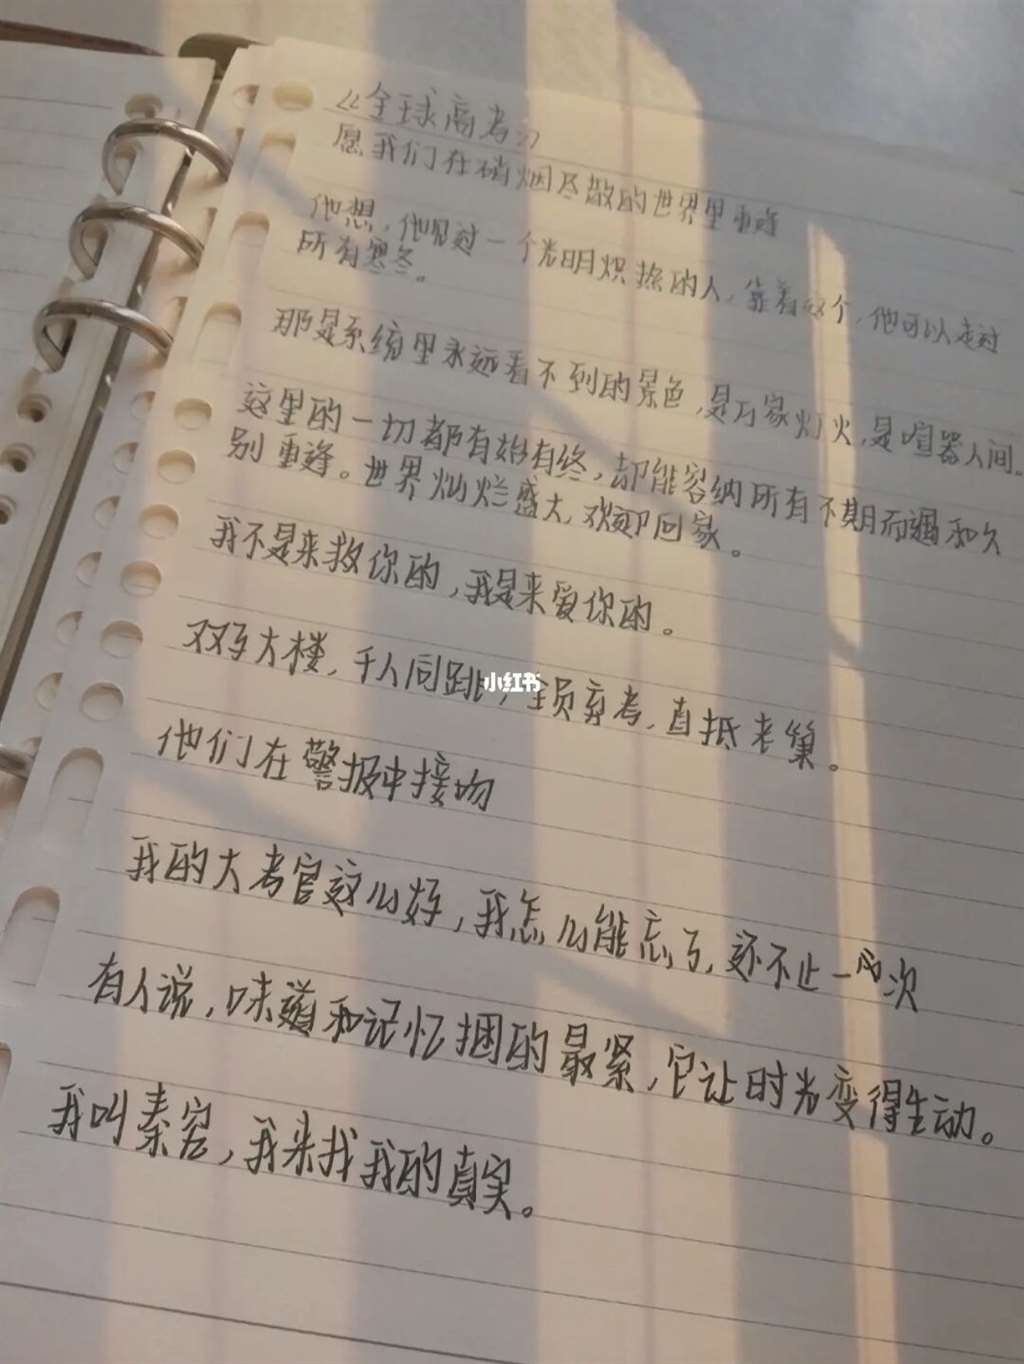 《全球高考》
愿我们在硝烟尽散的世界里重逢
他想，他见过一个光明炽热的人，靠着这个，他可以走过
所有寒冬。
那是系统里永远看不到的景色，是万家灯火，是喧嚣人间。
这里的一切都有始有终，却能容纳所有不期而遇和久
别重逢。世界灿烂盛大，欢迎回家。
我不是来救你的，我是来爱你的。
双子大楼，千人同跳，全员弃考，直抵老巢。
他们在警报中接吻
小红书
我的大考官这么好，我怎么能忘了，还不止一两次
有人说，味道和记忆捆的最紧，它让时光变得生动。
我叫秦究，我来找我的真实。